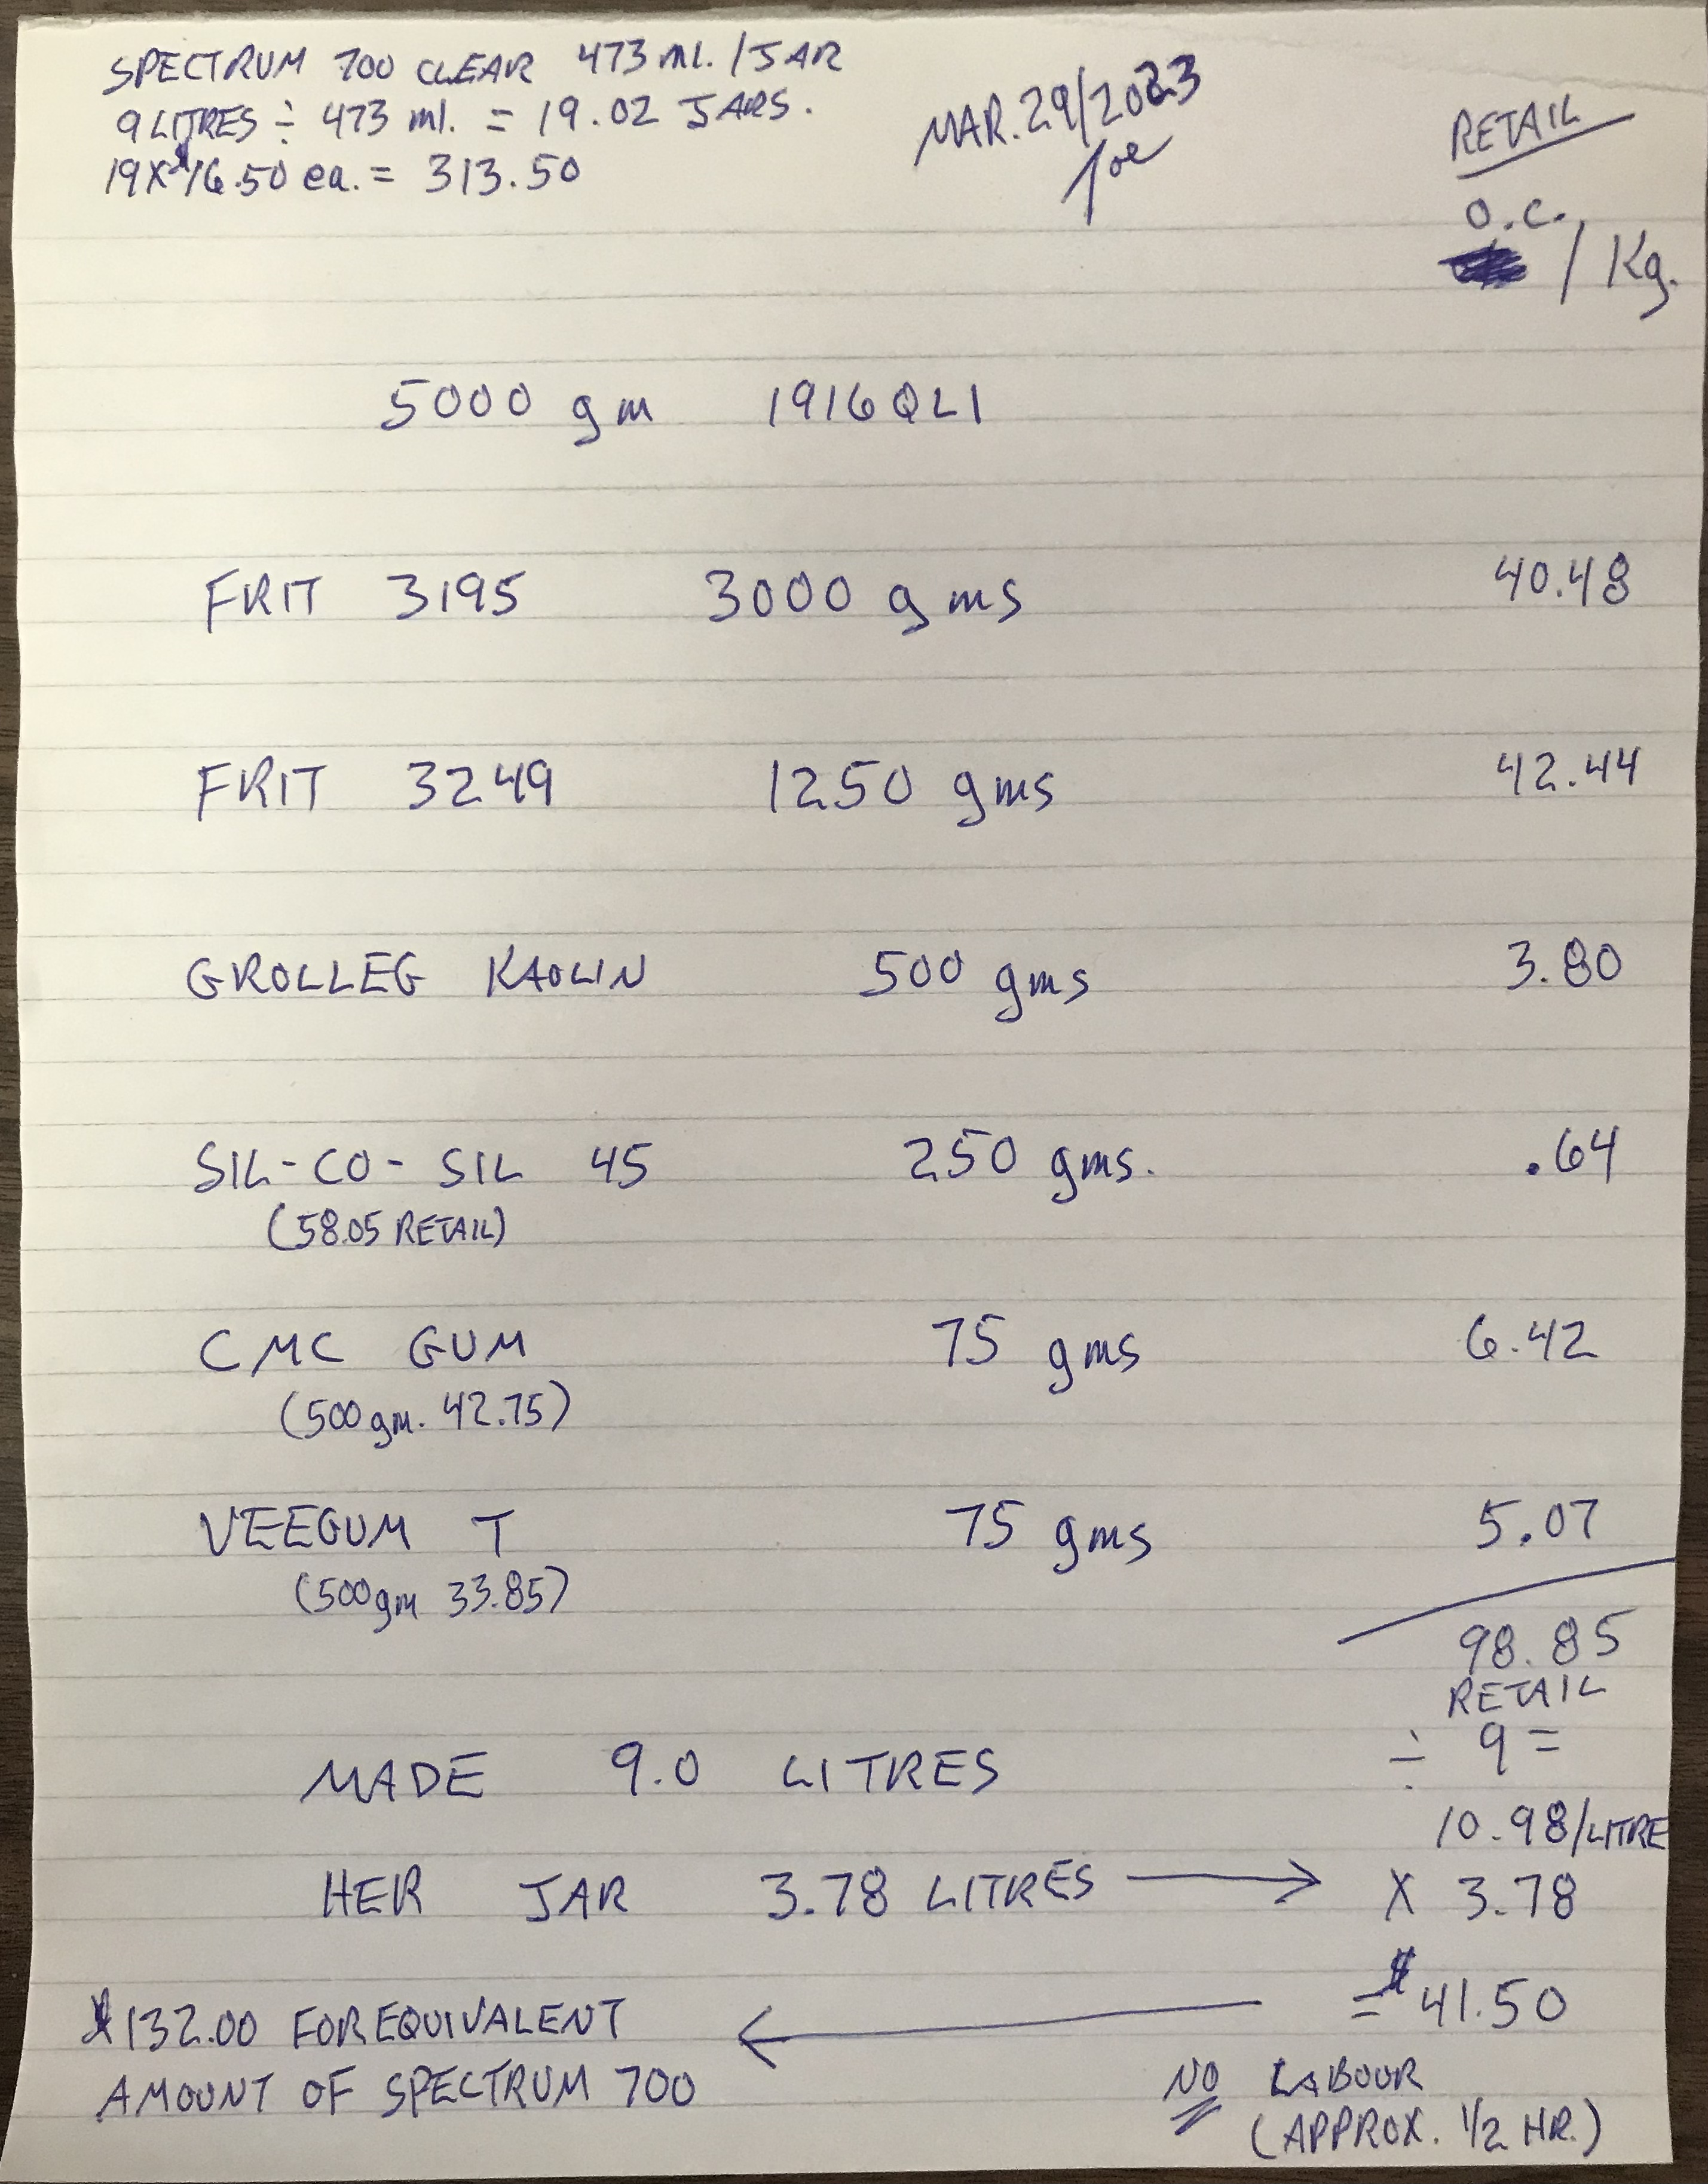 SPECTRUM 700 CLEAR 473 ml. / JAR
9 LITRES ÷ 473 ml. = 19.02 JARS.
19 X $16.50 ea. = 313.50
MAR. 29/2023
Joe
RETAIL
O.C.
/ Kg.
5000 gm 1916QL1
FRIT 3195 3000 gms 40.48
FRIT 3249 1250 gms 42.44
GROLLEG KAOLIN 500 gms 3.80
SIL-CO-SIL 45 250 gms. .64
(58.05 RETAIL)
CMC GUM 75 gms 6.42
(500gm. 42.75)
VEEGUM T 75 gms 5.07
(500gm 33.85)
98.85
RETAIL
÷ 9 =
MADE 9.0 LITRES
10.98/LITRE
HER JAR 3.78 LITRES → X 3.78
= $41.50
$132.00 FOR EQUIVALENT ←
AMOUNT OF SPECTRUM 700
NO LABOUR
(APPROX. 1/2 HR.)